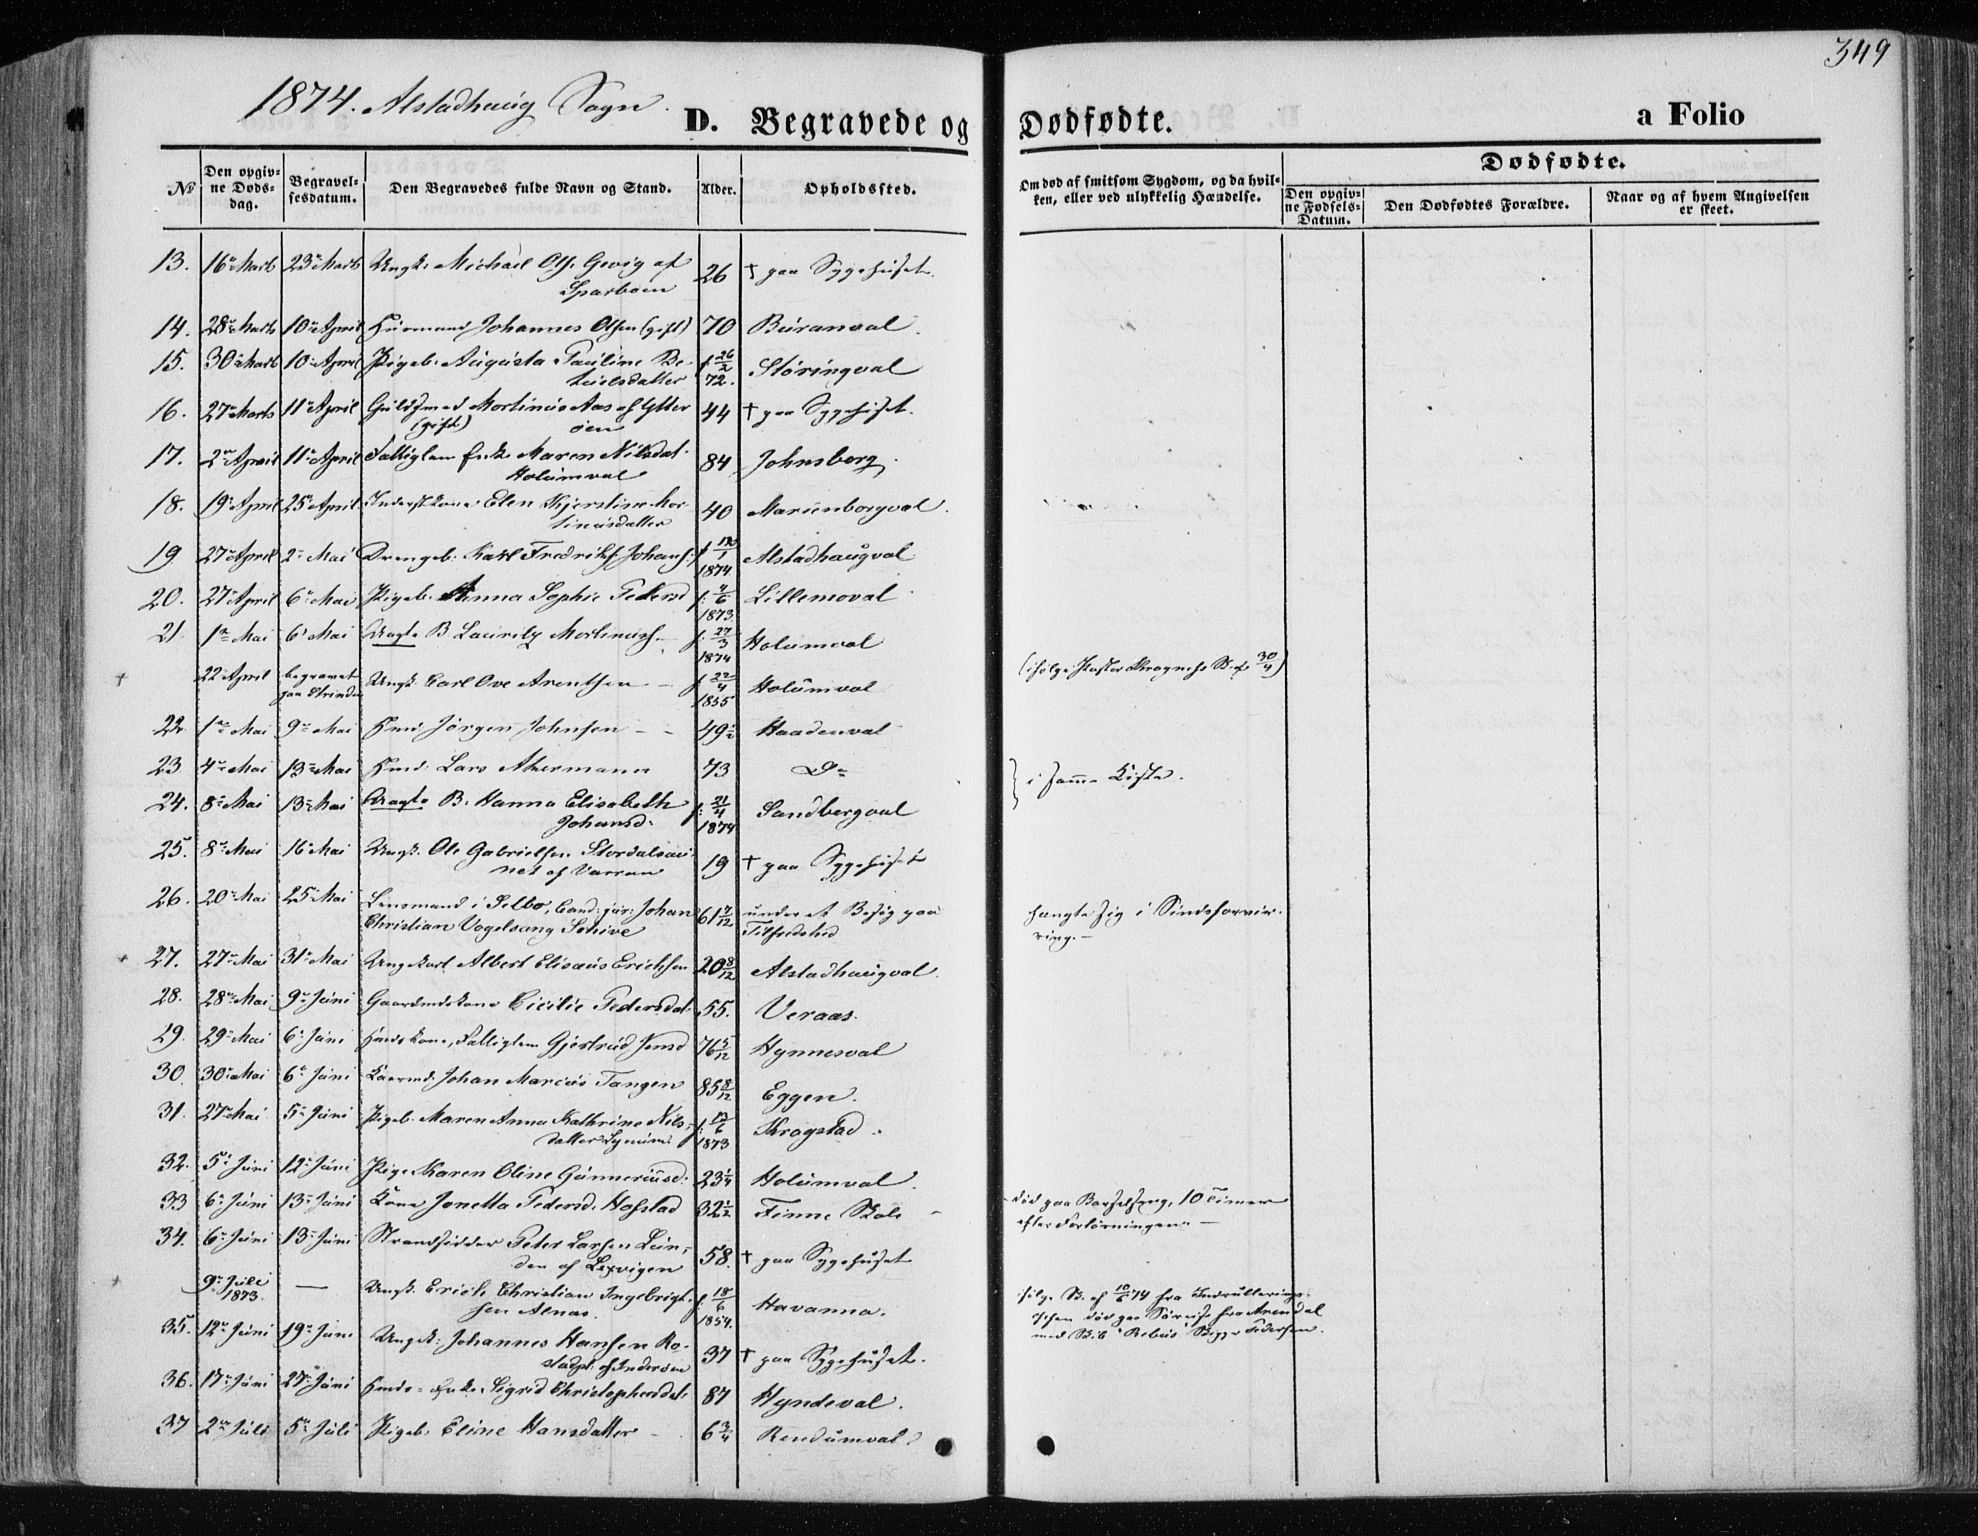 349
1874. Alstadhaug Sogn.
D. Begravede og Dødfødte. a Folio
Dødfødte.
No Den opgivne Dødsdag. Begravelsesdatum. Den Begravedes fulde Navn og Stand. Alder. Opholdssted. Om død af smitsom Sygdom, og da hvilken, eller ved ulykkelig Hændelse. Den opgivne Fødsels-Datum. Den Dødfødtes Forældre. Naar og af hvem Angivelsen er skeet.
13. 16de Marts 23de Marts Ungk. Michael Ols. Gevig af 26 † paa Sygehuset.
Sparboen
14. 28de Marts 10de April Huusmand Johannes Olsen (gift) 70 Buranval
15. 30de Marts 10de April Pigeb. Augusta Pauline Be- f 26/2 72. Støringval
thuelsdatter
16. 27de Marts 11te April Guldsmed Mortinus Aas af Ytter 44 † paa Sygehuset.
(gift) øen
17. 2den April 11te April Fattiglem Enke Maren Nilsdat. 84 Johnsborg
Holumval
18. 19de April 25de April Inderstkone Elen Kjerstine Mor- 40 Marienborgval.
tinusdatter
19 27de April 2den Mai Drengeb. Karl Fredrik Johans. f 1874 Alstadhaugval
20. 27de April 6te Mai Pigeb. Anna Sophie Pedersd f. 4/6 1873 Lillemoval
21 1ste Mai 6te Mai Uægte B. Lauritz Mortinuss. f. 27/3 1874 Holumval
22 April begravet paa Strinden Ungk. Carl Ove Arentsen f 22/4 1855 Holumval (ifølge Pastor Kragness B. af 30/4)
22 1ste Mai 9de Mai Hmd Jørgen Johnsen 49½ Haadenval
23 4de Mai 13de Mai Hmd. Lars Akermann 73 Do
} i samme Kiste.
24. 8de Mai 13de Mai Uægte B. Hanna Elisabeth f. 21/4 1874 Sandbergval
Johansd.
25. 8de Mai 16de Mai Ungk. Ole Gabrielsen Stordalsau- 19 † paa Sygehuset
net af Værran
26. 20de Mai 25de Mai Lensmand i Selbo, Cand. jur. Johan 61 7/12 under et Besøg paa hængte sig i Sindsforvir-
Christian Vogelsang Schive Tilfredshed ring.
27. 27de Mai 31te Mai Ungekarl Albert Elisæus Erichsen 20 8/12 Alstadhaugval.
28. 28de Mai 9de Juni Gaardmdskone Cicilie Pedersdat. 55. Veraas.
29. 29de Mai 6te Juni Hmdskone, Fattiglem Gjertrud Jensd 76 5/12 Hynnesval
30. 30te Mai 6te Juni Kaarmd. Johan Marcus Tangen 85 8/12 Eggen.
31. 27de Mai 5te Juni Pigeb. Maren Anna Kathrine Nils- f. 12/6 1873 Krogstad.
datter
32. 5te Juni 12te Juni Pige Karen Oline Gunneriusd. 23¼ Holumval.
33 6te Juni 13de Juni Kone Jonetta Pedersd. Hofstad 32½ Finne Skole Død paa Barselseng, 10 Timer
efter Forløsningen.
34. 6te Juni 13de Juni Strandsidder Peter Larsen Lun- 58. † paa Sygehuset
den af Lexvigen
9de Juli 1873. — Ungk. Erich Christian Ingebrigt- f. 18/6 1854. Havanna. ifølge B. af 10/6 74 fra Indrullerings-
sen Alnæs. chefen død paa Søreise fra Arendal
med Skib "Rebus" Skipper Pedersen.
35. 12te Juni 19de Juni Ungk. Johannes Hansen Ro- 37 † paa Sygehuset.
stadpl. af Inderøen
36. 17de Juni 27de Juni Hmds-Enke Sigrid Christophersdat. 87 Hyndeval.
37 2den Juli 5te Juli Pigeb. Eline Hansdatter 6¾ Rendumval